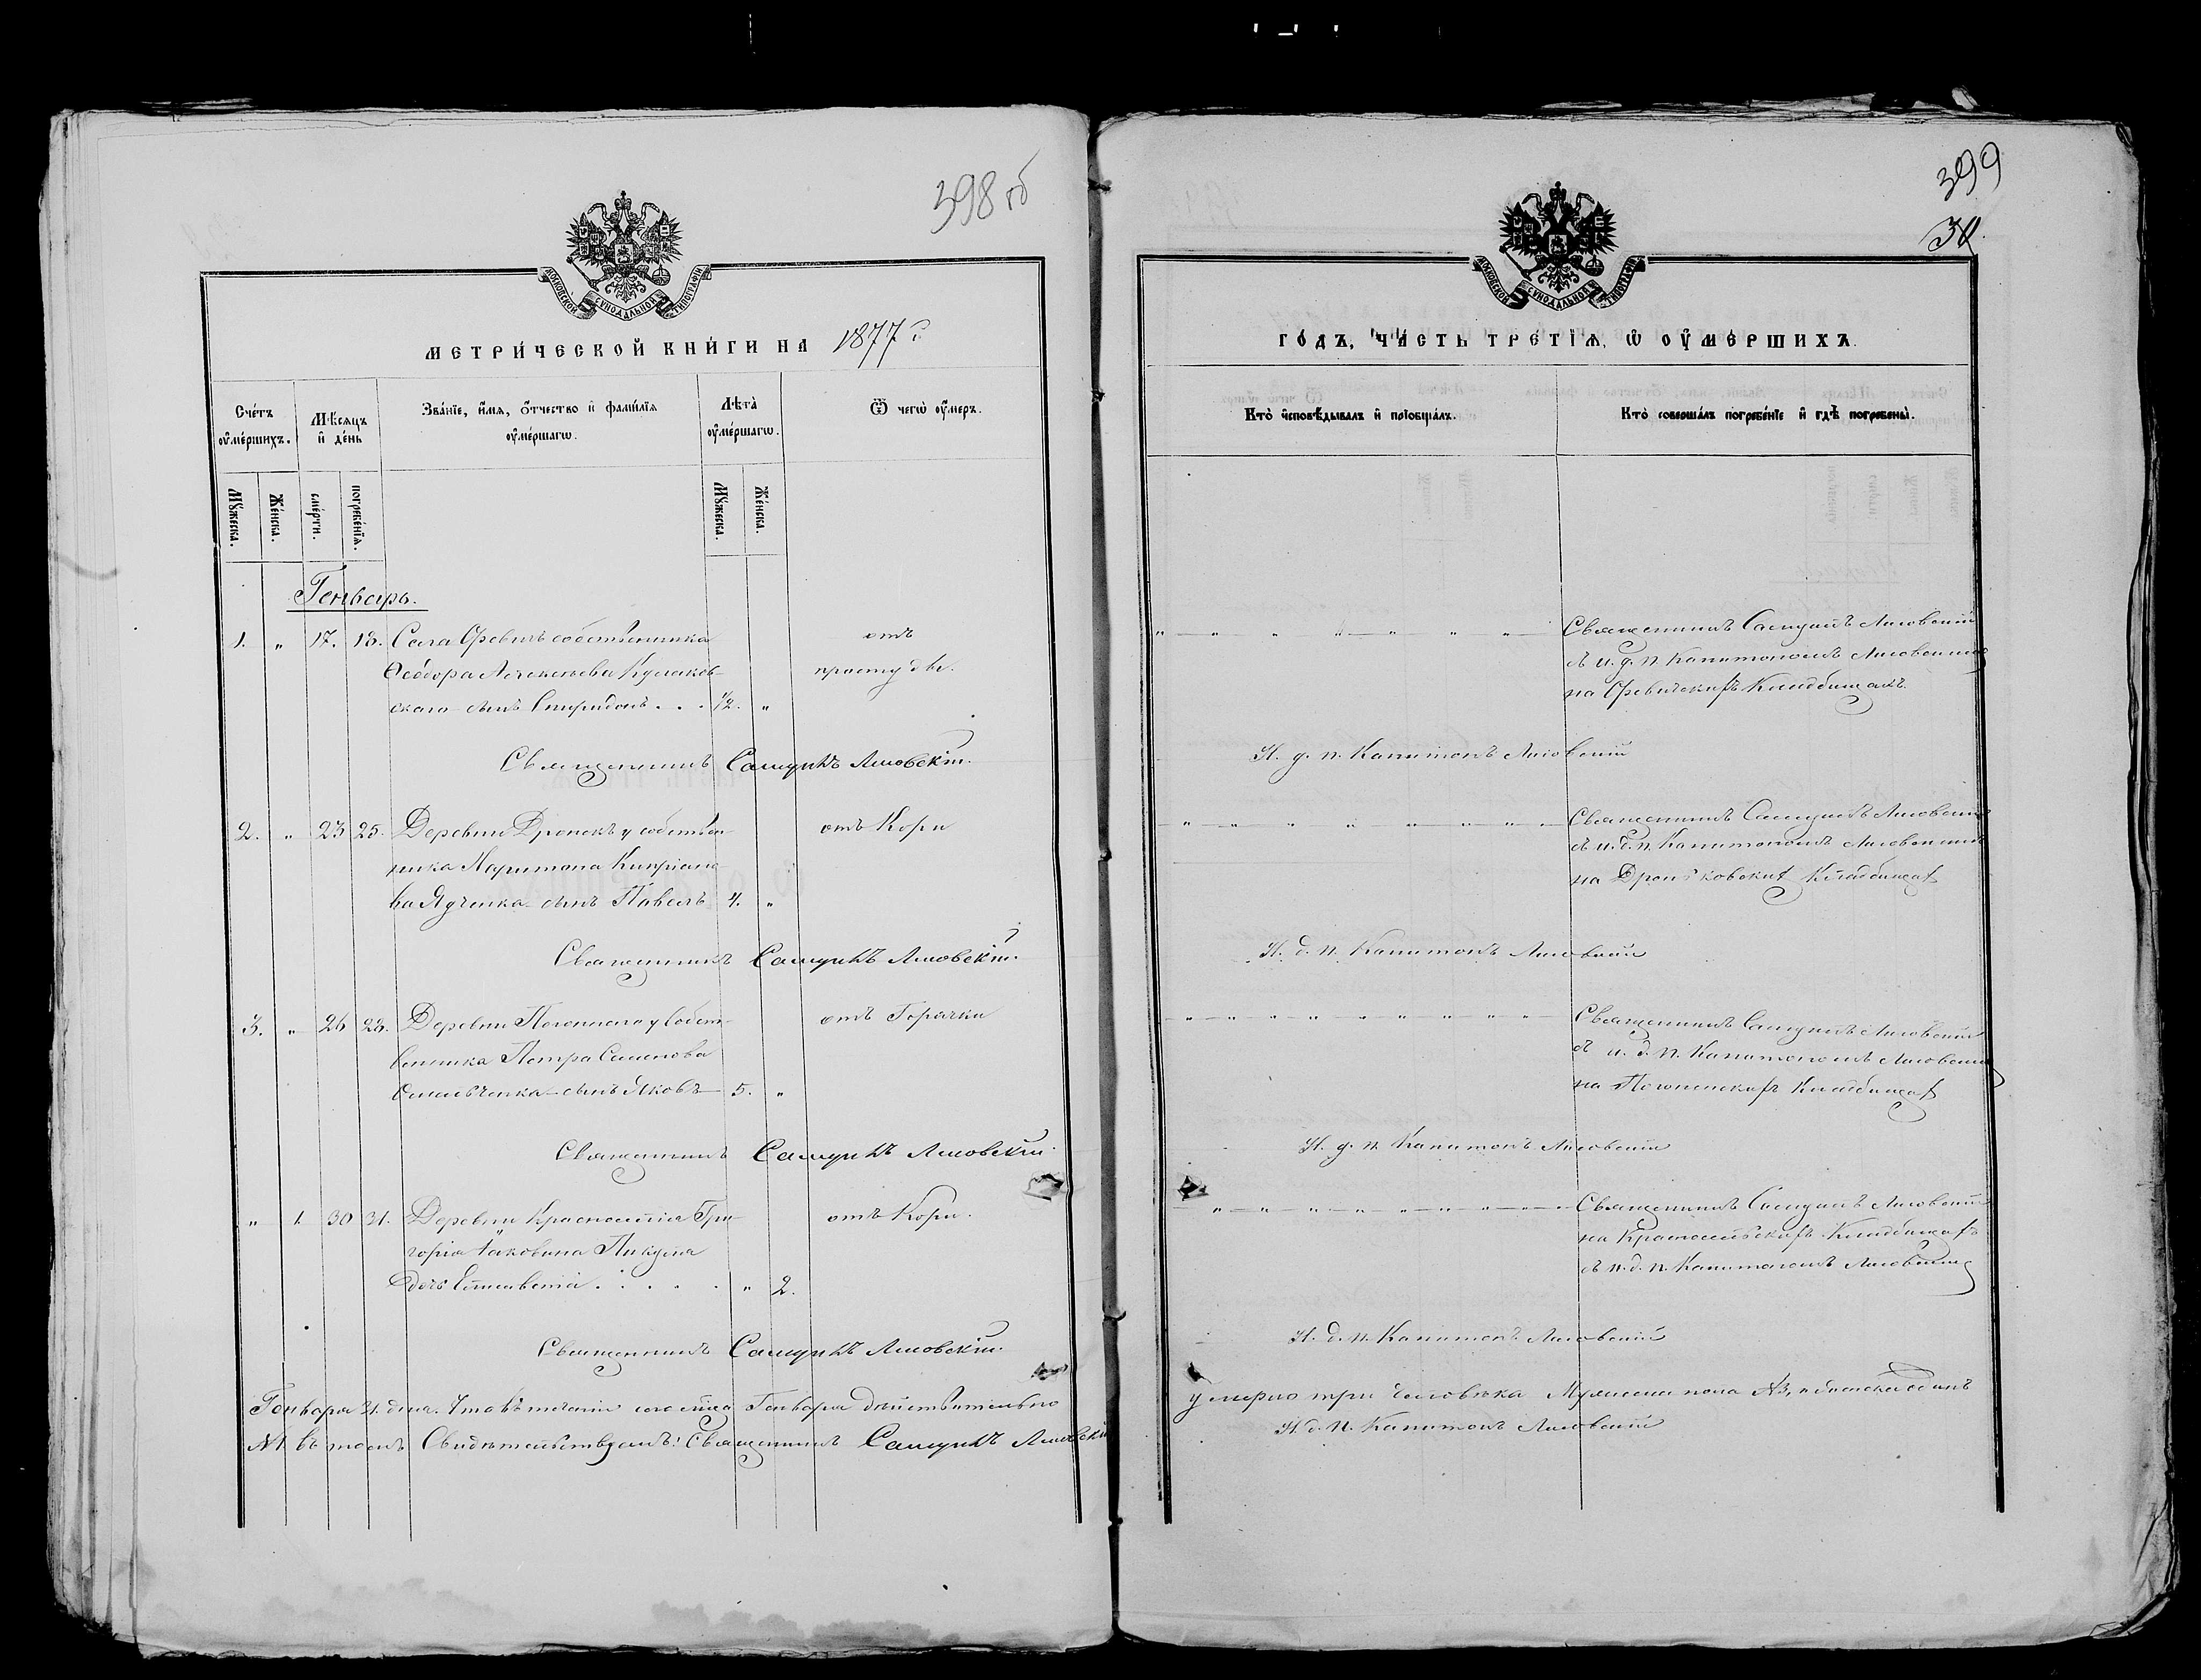 398 об
МОСКОВСКОЙ СѴНОДАЛЬНОЙ ТИПОГРАФІИ
МЕТРИ́ЧЕСКОЙ КНИ́ГИ НА 1877 г
Сче́тъ ᲂу҆ме́ршихъ.
Мѣ́сяцъ и҆ де́нь
Зва́нїе, и҆́мѧ, ѻ҆́тчество и҆ фами́лїѧ ᲂу҆ме́ршагѡ.
Лѣта̀ ᲂу҆ме́ршагѡ.
Ѿ чегѡ̀ ᲂу҆́меръ.
Мꙋ́жеска.
Же́нска.
сме́рти.
погребе́нїѧ.
Мꙋ́жеска.
Же́нска.
Генварь.
1. „ 17. 18. Села Оревичъ собственника отъ
Ѳеодора Алексѣева простуды.
скаго сынъ Спиридонъ . . . 1/2. „
Священникъ Самуилъ Лисовскій.
2. „ 23 25. Деревни Дронекъ у собствен- отъ Кори
ника Харитона Кипріано-
ва сынъ Павелъ 4. „
Священникъ Самуилъ Лисовскій.
3. „ 26 28. Деревни у собст- отъ Горячки
венника Петра Семенова
сынъ Яковъ 5. „
Священникъ Самуилъ Лисовскій.
„ 1. 30 31. Деревни Красноселья Гри- отъ Кори.
горія Іаковина Пикуля
дочь Елисавета . . . . . „ 2.
Священникъ Самуилъ Лисовскій.
Генваря 31 дня. Что въ теченіи сего мѣсяца Генваря дѣйствительно
№1 въ томъ Свидѣтельствуемъ: Священникъ Самуилъ Лисовскій
399
МОСКОВСКОЙ СѴНОДАЛЬНОЙ ТИПОГРАФІИ
ГО́ДЪ, ЧА́СТЬ ТРЕ́ТЇѦ, Ѡ҆ ОУ҆МЕ́РШИХЪ.
Кто̀ и҆сповѣ́дывалъ и҆ прїобща́лъ.
Кто̀ соверша́лъ погребе́нїе и҆ гдѣ̀ погребены̀.
Священникъ Самуилъ Лисовскій
съ и. д. п. Капитономъ Лисовскимъ
на Оревичскихъ Кладбищахъ.
И. д. п. Капитонъ Лисовскій
Священникъ Самуилъ Лисовскій
съ и. д. п. Капитономъ Лисовскимъ
на Дроньковских Кладбищах
И. д. п. Капитонъ Лисовскій
Священникъ Самуилъ Лисовскій
съ и. д. п. Капитономъ Лисовским
на Кладбищах
И. д. п. Капитонъ Лисовскій
Священникъ Самуилъ Лисовскій
на Красносельскихъ Кладбищахъ
съ и. д. п. Капитономъ Лисовским
И. д. п. Капитонъ Лисовскій
умерло три человѣка Мужеска пола №3, а женска одинъ
И. д. п. Капитонъ Лисовскій